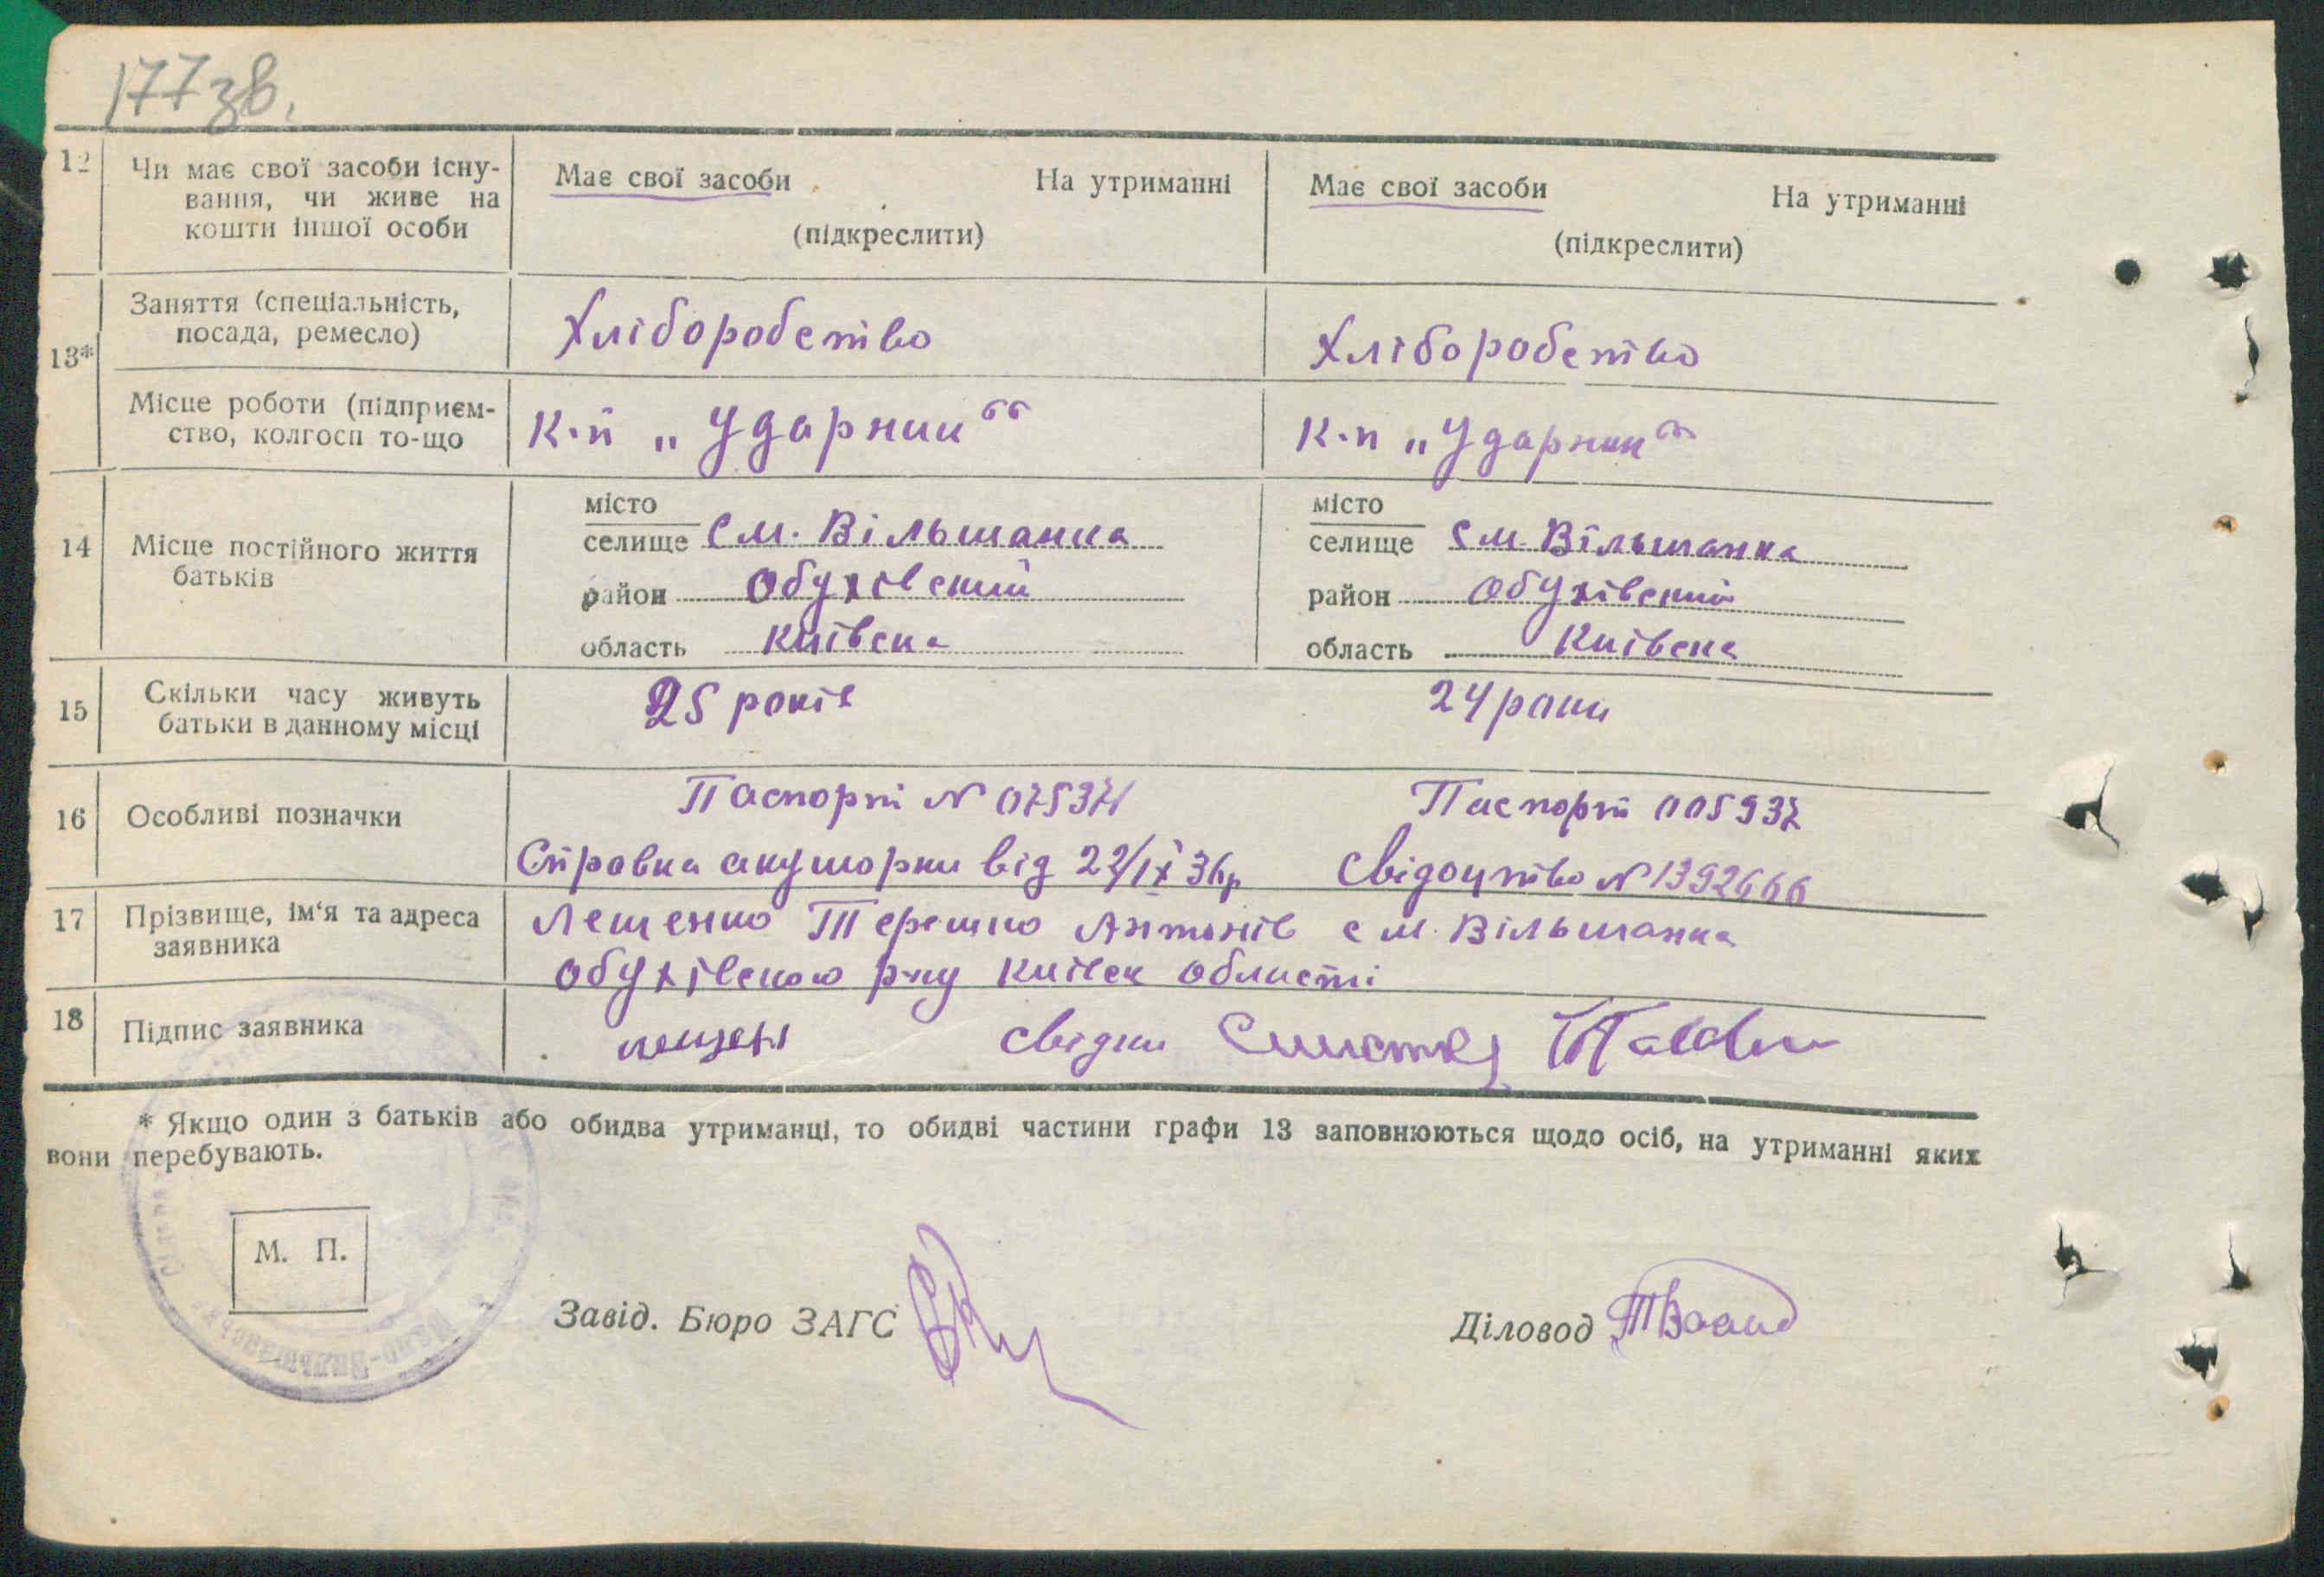 177зв.
12 Чи має свої засоби існу- Має свої засоби На утриманні Має свої засоби На утриманні
вання, чи живе на
кошти іншої особи (підкреслити) (підкреслити)
Заняття (спеціальність, Хліборобство Хліборобство
посада, ремесло)
13*
Місце роботи (підприєм- К-п „Ударник“ К-п „Ударник“
ство, колгосп то-що
місто місто
14 Місце постійного життя селище См. Вільшанка селище См. Вільшанка
батьків район Обухівский район Обухівский
область Київска область Київска
15 Скільки часу живуть 25 років 24 роки
батьки в данному місці
16 Особливі позначки Паспорт N 075371 Паспорт 005937
Справка акушорки від 22/IX 36р Свідоцтво N 1392666
17 Прізвище, ім‘я та адреса Лещенко Терешко Антонів с м. Вільшанка
заявника Обухівского р-ну Київск області
18 Підпис заявника лещен свідки
* Якщо один з батьків або обидва утриманці, то обидві частини графи 13 заповнюються щодо осіб, на утриманні яких
вони перебувають.
М. П.
Завід. Бюро ЗАГС Діловод